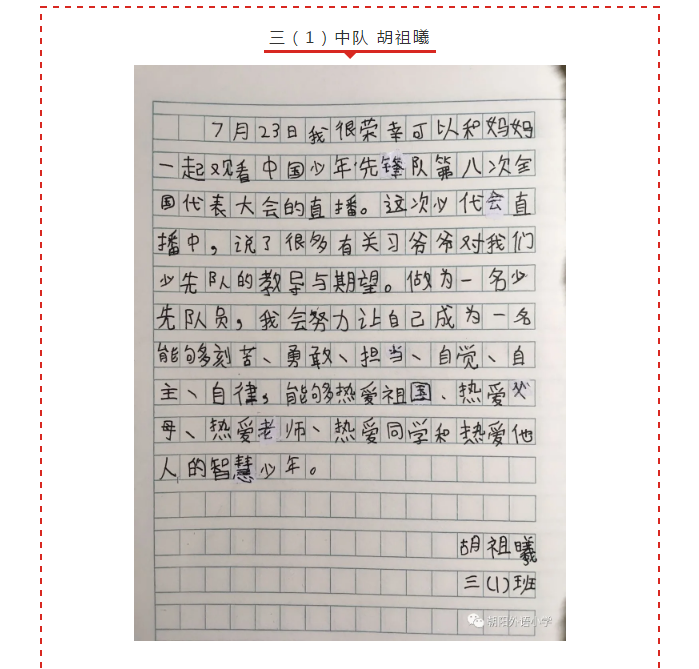 三（1）中队 胡祖曦
7月23日我很荣幸可以和妈妈
一起观看中国少年先锋队第八次全
国代表大会的直播。这次少代会直
播中，说了很多有关习爷爷对我们
少先队的教导与期望。做为一名少
先队员，我会努力让自己成为一名
能够刻苦、勇敢、担当、自觉、自
主、自律，能够热爱祖国、热爱父
母、热爱老师、热爱同学和热爱他
人的智慧少年。
胡祖曦
三(1)班
朝阳外语小学